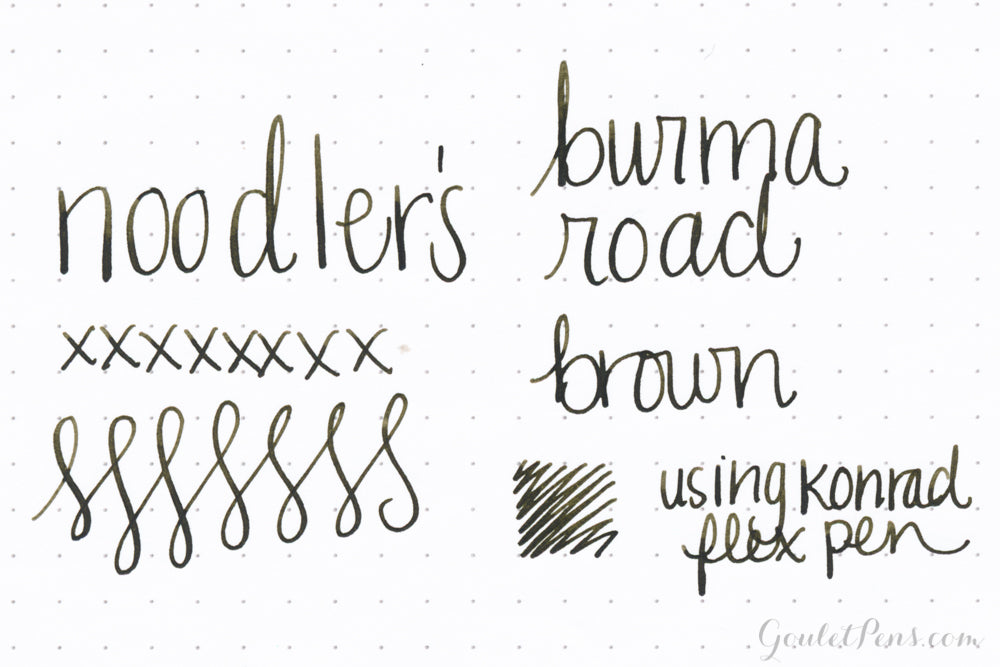 noodler's
xxxxxxxx
burma
road
brown
using Konrad
flex pen
GouletPens.com